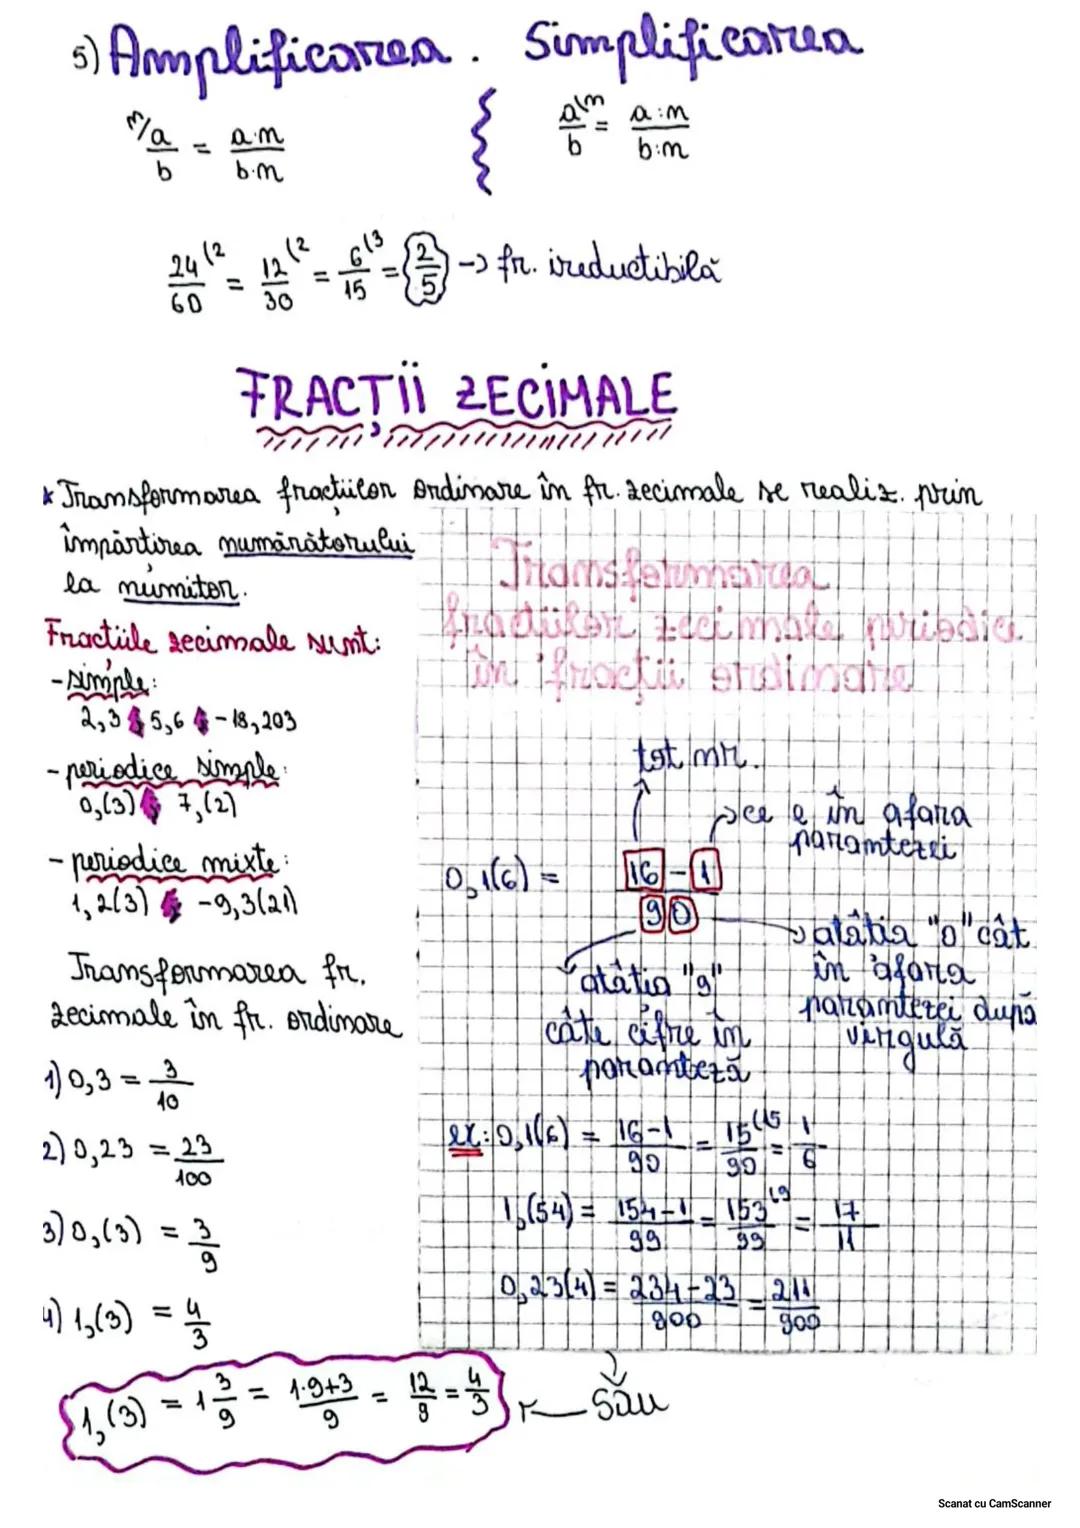 5) Amplificarea. Simplificarea
m/a/b = a·m/b·m
a(m/b = a:m/b:m
24(2/60 = 12(2/30 = 6(3/15 = 2/5 -> fr. ireductibilă
FRACȚII ZECIMALE
* Transformarea fracțiilor ordinare în fr. zecimale se realiz. prin
împărțirea numărătorului
la numitor.
Fracțiile zecimale sunt:
- simple:
2,3 ; 5,6 ; -18,203
- periodice simple:
0,(3) ; 7,(2)
- periodice mixte:
1,2(3) ; -9,3(21)
Transformarea fr.
zecimale în fr. ordinare
1) 0,3 = 3/10
2) 0,23 = 23/100
3) 0,(3) = 3/9
4) 1,(3) = 4/3
1,(3) = 1 3/9 = 1·9+3/9 = 12/9 = 4/3
Transformarea
fracțiilor zecimale periodice
în fracții ordinare
tot nr.
ce e în afara
parantezei
0,1(6) = 16-1/90
atâția "9"
câte cifre în
paranteză
atâția "0" cât
în afara
parantezei după
virgulă
ex: 0,1(6) = 16-1/90 = 15(15/90 = 1/6
1,(54) = 154-1/99 = 153(9/99 = 17/11
0,23(4) = 234-23/900 = 211/900
sau
Scanat cu CamScanner